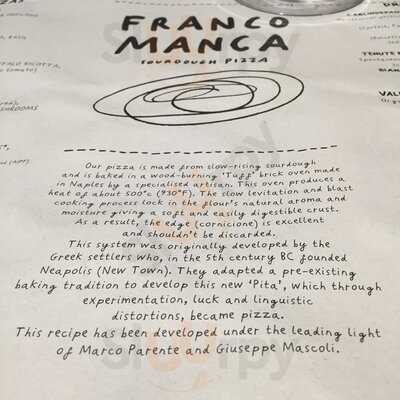 FRANCO
MANCA
SOURDOUGH PIZZA
Our pizza is made from slow-rising sourdough
and is baked in a wood-burning 'Tuff' brick oven made
in Naples by a specialised artisan. This oven produces a
heat of about 500°c (930°F). The slow levitation and blast
cooking process lock in the flour's natural aroma and
moisture giving a soft and easily digestible crust.
As a result, the edge (cornicione) is excellent
and shouldn't be discarded.
This system was originally developed by the
Greek settlers who, in the 5th century BC founded
Neapolis (New Town). They adapted a pre-existing
baking tradition to develop this new 'Pita', which through
experimentation, luck and linguistic
distortions, became pizza.
This recipe has been developed under the leading light
of Marco Parente and Giuseppe Mascoli.